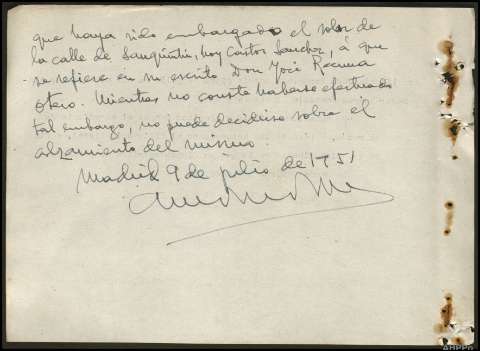 que haya sido embargado el solar de
la calle de Sangüntin, hoy Castor Sanchez, á que
se refiere en su escrito Don José Recuna
Otero. Mientras no conste haberse efectuado
tal embargo, no puede decidirse sobre el
alzamiento del mismo.
Madrid 9 de julio de 1951